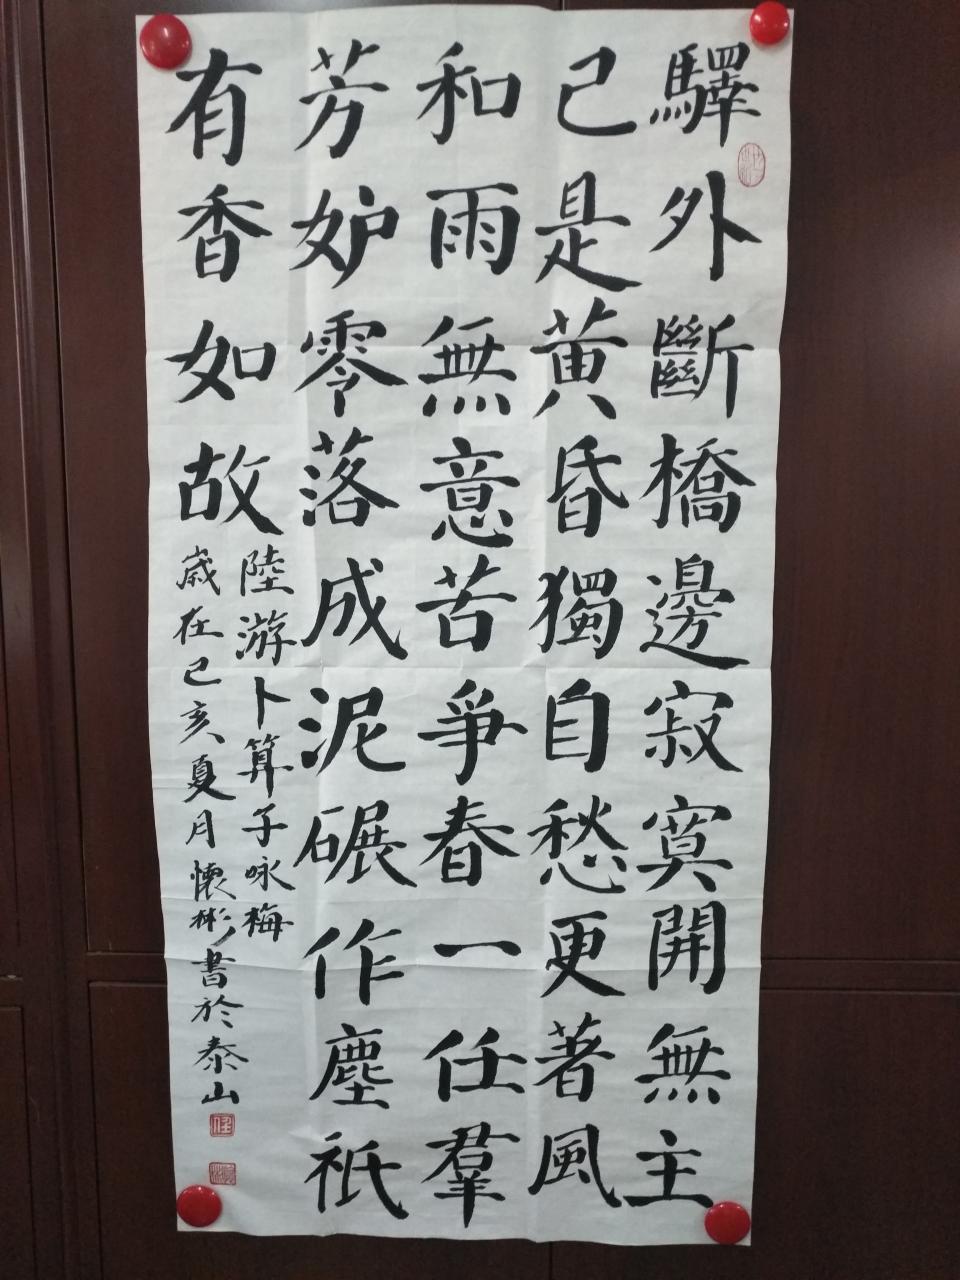 驛外斷橋邊寂寞開無主
已是黃昏獨自愁更著風
和雨無意苦爭春一任羣
芳妒零落成泥碾作塵祇
有香如故
陸游卜算子咏梅
歲在己亥夏月懷彬書於泰山